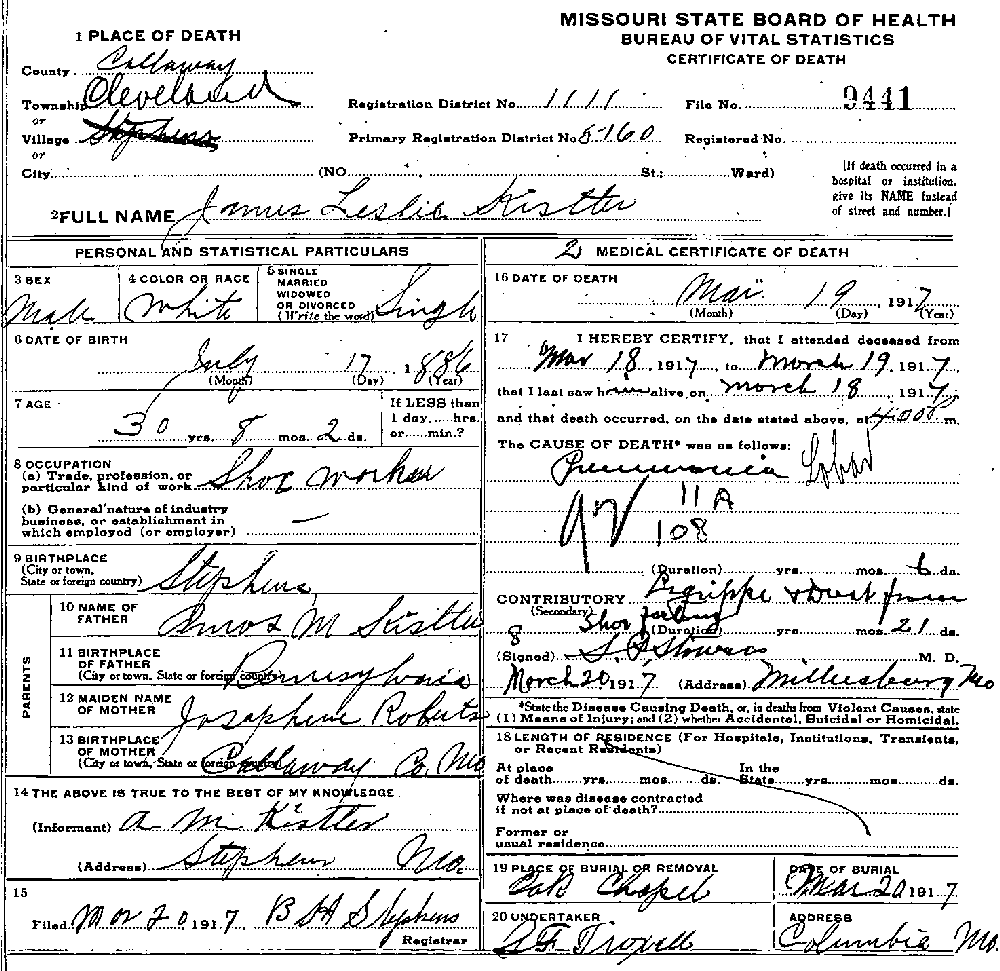 MISSOURI STATE BOARD OF HEALTH
BUREAU OF VITAL STATISTICS
CERTIFICATE OF DEATH
1 PLACE OF DEATH
County Callaway
Township Cleveland
or
Village Stephens
or
City (NO. St.; Ward)
Registration District No. 1111 File No. 9441
Primary Registration District No. 5160 Registered No.
[If death occurred in a
hospital or institution,
give its NAME instead
of street and number.]
2 FULL NAME James Leslie Kistler
PERSONAL AND STATISTICAL PARTICULARS
3 SEX
Male
4 COLOR OR RACE
White
5 SINGLE
MARRIED
WIDOWED
OR DIVORCED
(Write the word) Single
6 DATE OF BIRTH
July 17 1886
(Month) (Day) (Year)
7 AGE
30 yrs. 8 mos. 2 ds.
If LESS than
1 day....hrs.
or....min.?
8 OCCUPATION
(a) Trade, profession, or
particular kind of work Shoe worker
(b) General nature of industry
business, or establishment in
which employed (or employer) —
9 BIRTHPLACE
(City or town,
State or foreign country) Stephens
PARENTS
10 NAME OF
FATHER Amos M Kistler
11 BIRTHPLACE
OF FATHER
(City or town, State or foreign country) Pennsylvania
12 MAIDEN NAME
OF MOTHER Josaphine Roberts
13 BIRTHPLACE
OF MOTHER
(City or town, State or foreign country) Callaway Co. Mo
14 THE ABOVE IS TRUE TO THE BEST OF MY KNOWLEDGE
(Informant) A M Kistler
(Address) Stephens Mo.
15
Filed Mar 20 1917 B H Stephens
Registrar
2 MEDICAL CERTIFICATE OF DEATH
16 DATE OF DEATH
Mar. 19, 1917
(Month) (Day) (Year)
17 I HEREBY CERTIFY, that I attended deceased from
Mar 18 1917, to March 19 1917
that I last saw him alive on March 18 1917
and that death occurred, on the date stated above, at 4:00 P m.
The CAUSE OF DEATH* was as follows:
Pneumonia Lobar
11 A
108
(Duration) yrs. mos. 6 ds.
CONTRIBUTORY Lagrippe & Dust from
(Secondary) Shoe
8 (Duration) yrs. mos. 21 ds.
(Signed) M. D.
March 20, 1917 (Address) Millersburg Mo
*State the Disease Causing Death, or, in deaths from Violent Causes, state
(1) Means of Injury; and (2) whether Accidental, Suicidal or Homicidal.
18 LENGTH OF RESIDENCE (For Hospitals, Institutions, Transients,
or Recent Residents)
At place In the
of death....yrs....mos....ds. State....yrs....mos....ds.
Where was disease contracted
if not at place of death?
Former or
usual residence
19 PLACE OF BURIAL OR REMOVAL
Oak Chapel
DATE OF BURIAL
Mar 20 1917
20 UNDERTAKER
Troxell
ADDRESS
Columbia Mo.